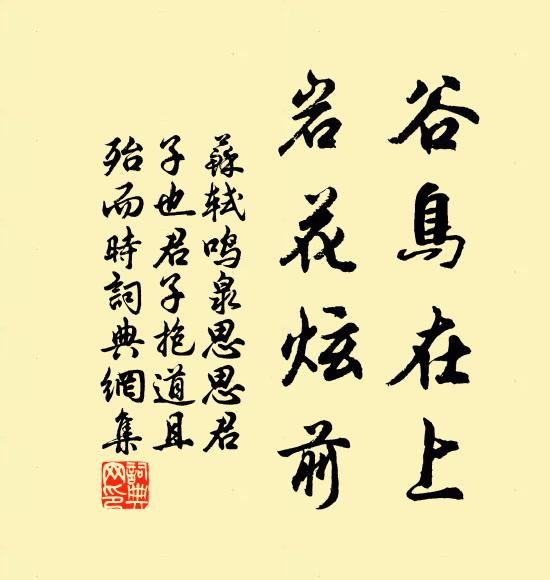 谷鳥在上
岩花炫前
蘇軾鸣泉思思君
子也君子抱道且
殆而時詞典網集
詞典网印